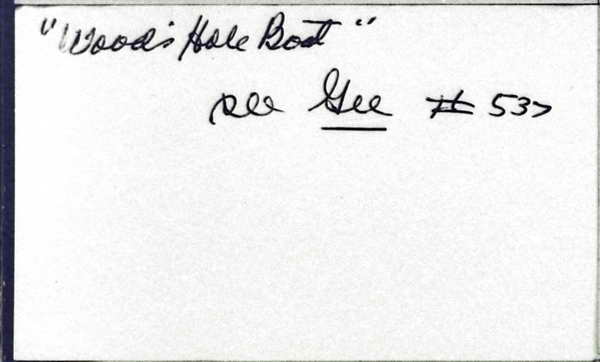 "Wood's Hole Boat"
see Gee # 537